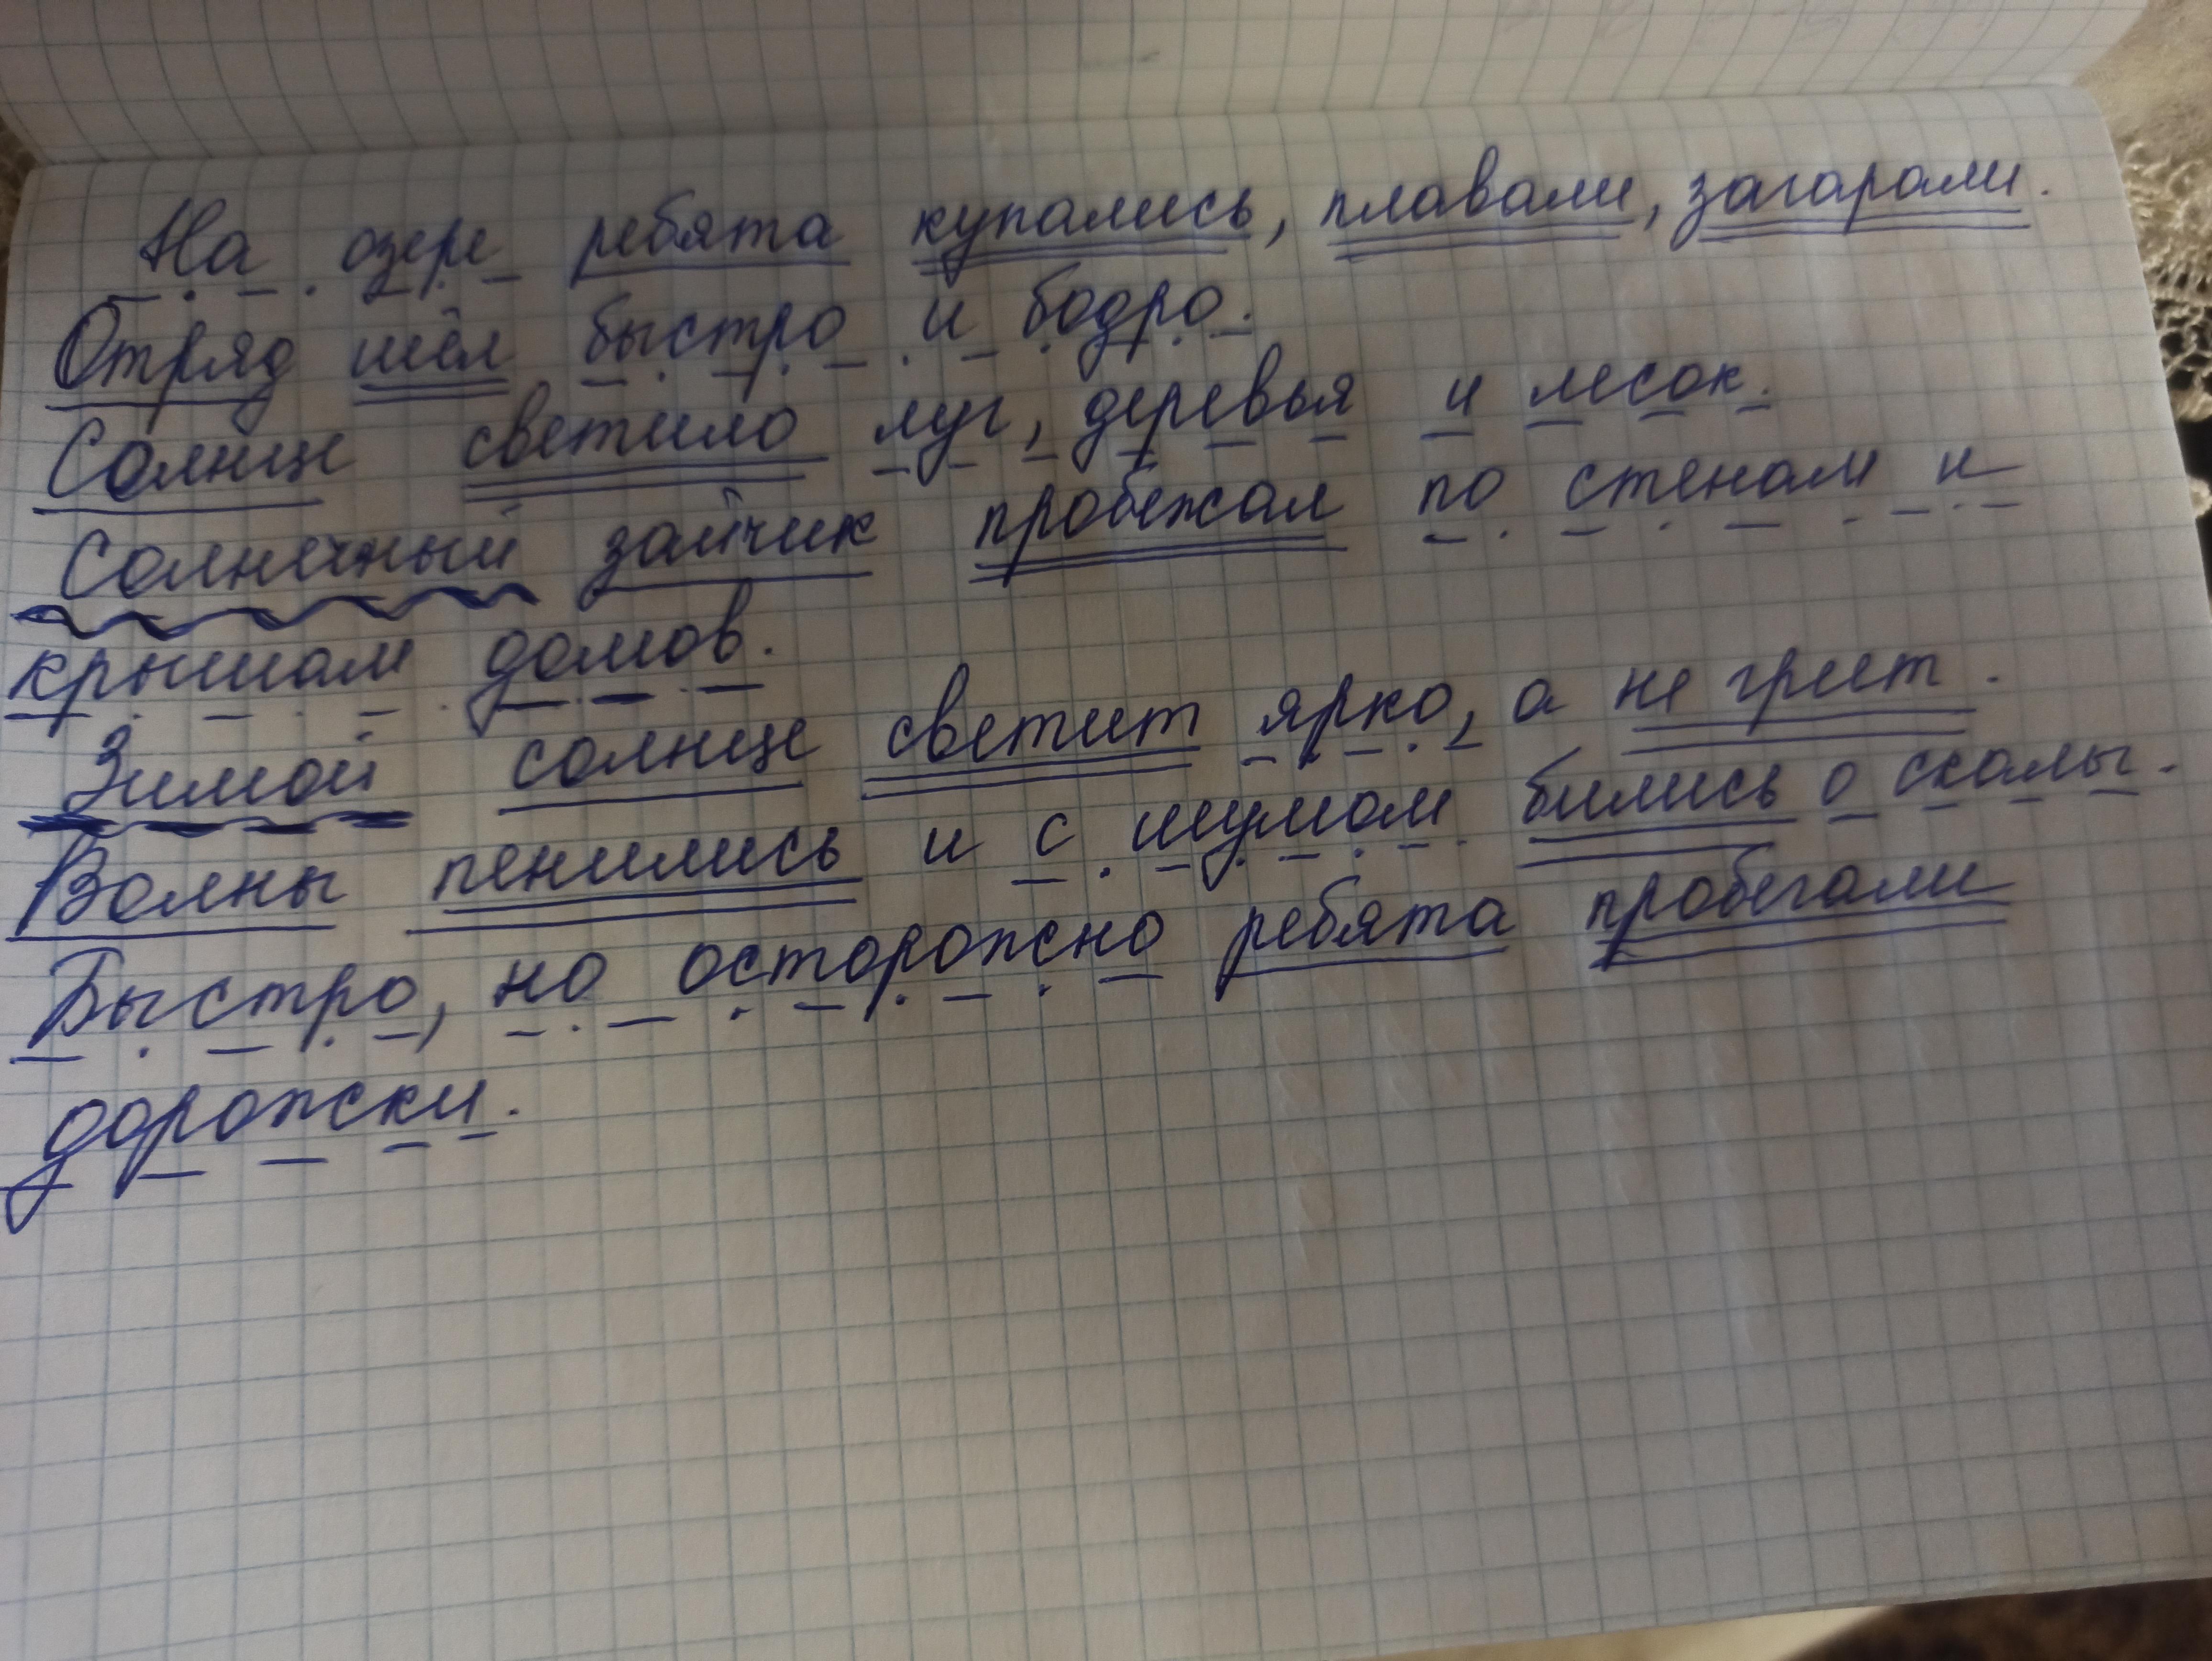 На озере ребята купались, плавали, загарали.
Отряд шёл быстро и бодро.
Солнце светило луг, деревья и лесок.
Солнечный зайчик пробежал по стенам и
крышам домов.
Зимой солнце светит ярко, а не греет.
Волны пенились и с шумом бились о скалы.
Быстро, но осторожно ребята пробегали
дорожки.